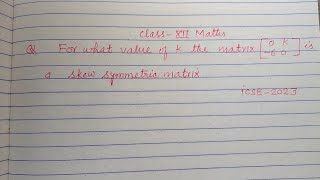 Class-XII Maths
Q For what value of k the matrix [0 k
-6 0] is
a skew symmetric matrix
ICSE-2023